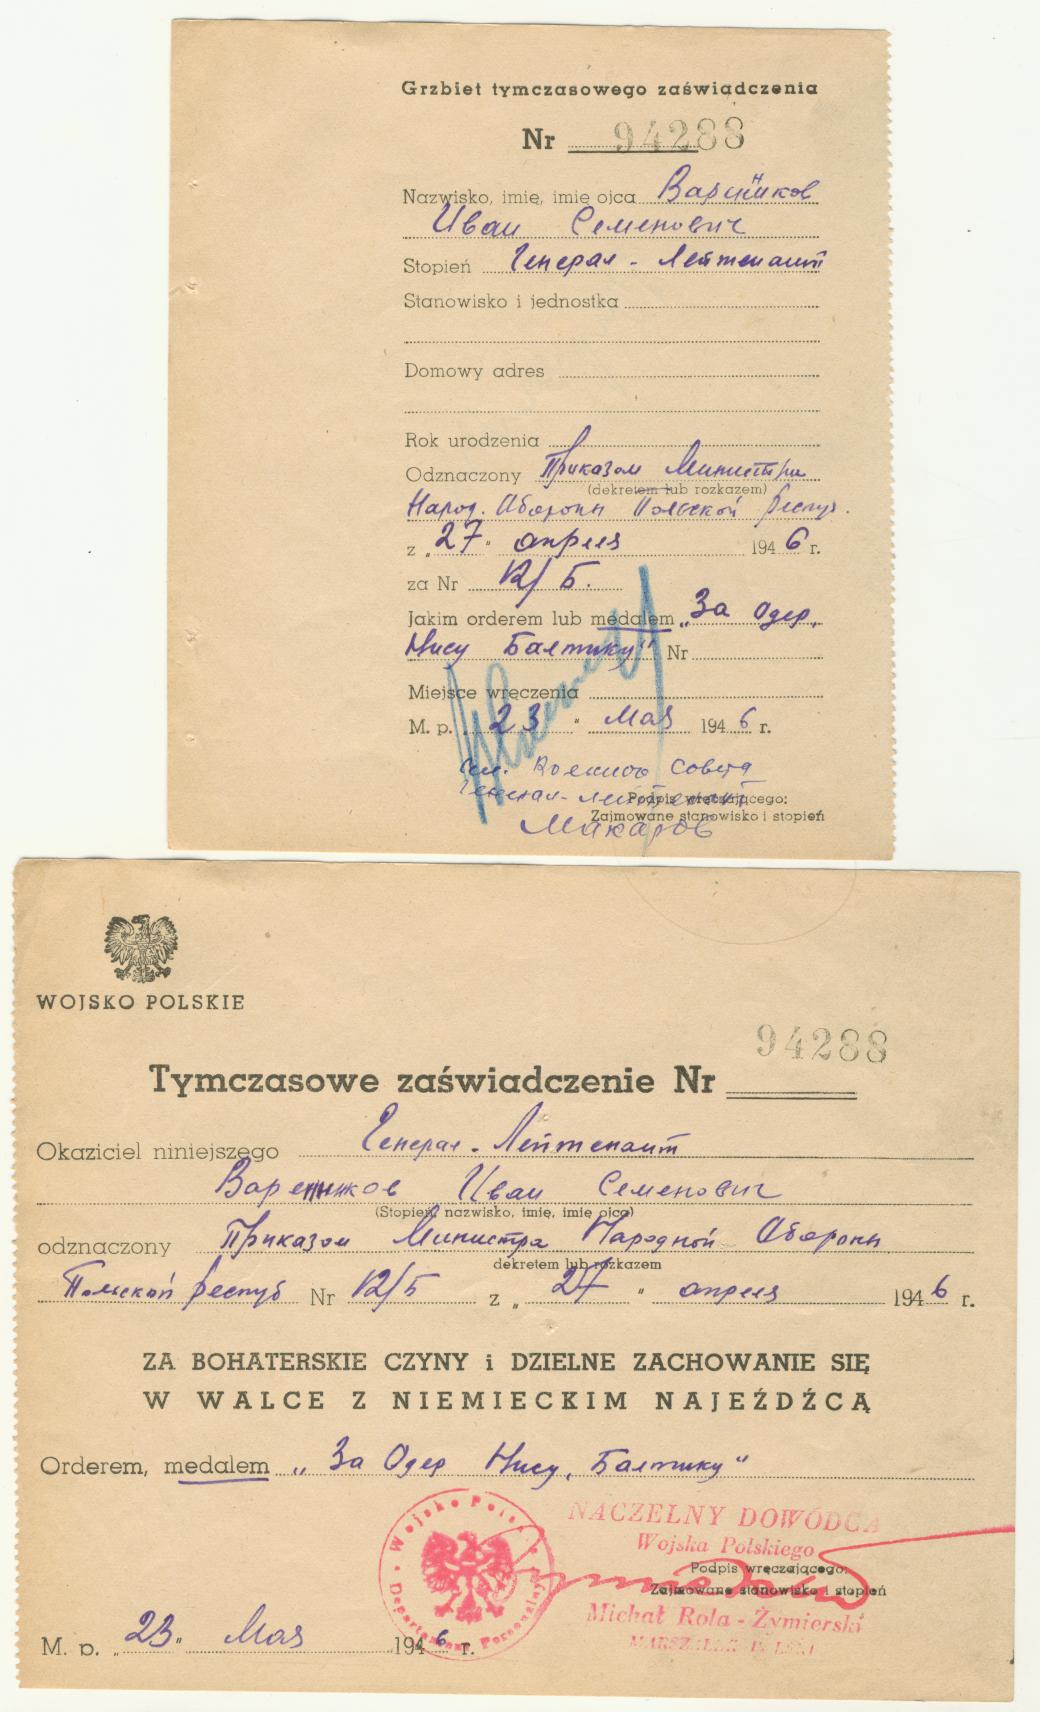 Grzbiet tymczasowego zaświadczenia
Nr 94288
Nazwisko, imię, imię ojca Варенников
Иван Семенович
Stopień Генерал-Лейтенант
Stanowisko i jednostka
Domowy adres
Rok urodzenia
Odznaczony Приказом Министра
(dekretem lub rozkazem)
Народ. Обороны Польской Респуб.
z „27" апреля 1946 г.
za Nr 12/Б.
Jakim orderem lub medalem „За Одер,
Нису Балтику" Nr
Miejsce wręczenia
M. p. „23" Мая 1946 r.
Чл. Военного Совета
Генерал-лейтенант
Podpis wręczającego:
Zajmowane stanowisko i stopień
Макаров
WOJSKO POLSKIE
94288
Tymczasowe zaświadczenie Nr
Okaziciel niniejszego Генерал-Лейтенант
Варенников Иван Семенович
(Stopień, nazwisko, imię, imię ojca)
odznaczony Приказом Министра Народной Обороны
dekretem lub rozkazem
Польской Респуб Nr 12/Б z „27" апреля 1946 r.
ZA BOHATERSKIE CZYNY i DZIELNE ZACHOWANIE SIĘ
W WALCE Z NIEMIECKIM NAJEŹDŹCĄ
Orderem, medalem „За Одер Нису, Балтику"
Wojsko Polskie
Departament Personalny
NACZELNY DOWÓDCA
Wojska Polskiego
Podpis wręczającego:
Zajmowane stanowisko i stopień
Michał Rola-Żymierski
MARSZAŁEK POLSKI
M. p. „23" Мая 1946 r.